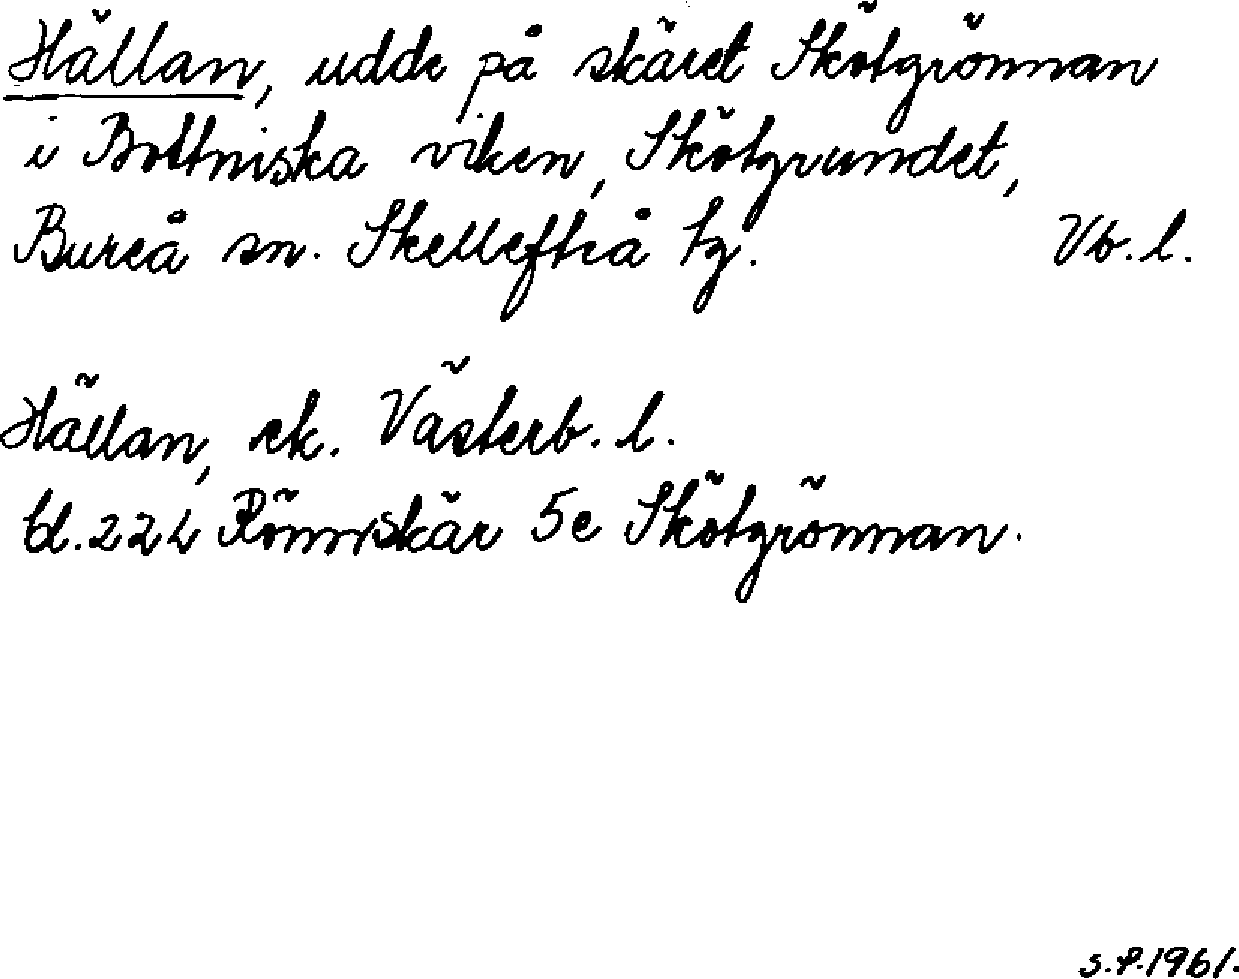 Hällan, udde på skäret Skötgrönnan
i Bottniska viken, Skötgrundet,
Bureå sn. Skellefteå tg. Vb. l.
Hällan, ek. Västerb. l.
bl. 22L Rönnskär 5e Skötgrönnan.
S.F. 1961.